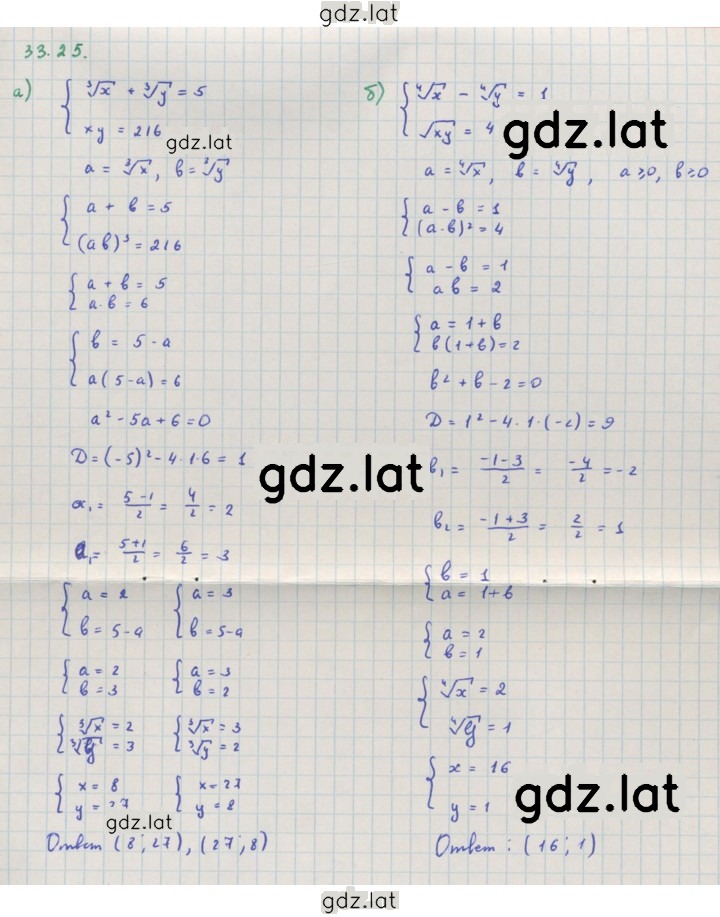 gdz.lat
33.25.
а)
∛x + ∛y = 5
xy = 216
gdz.lat
a = ∛x, b = ∛y
a + b = 5
(ab)³ = 216
a + b = 5
a·b = 6
b = 5 - a
a(5-a) = 6
a² - 5a + 6 = 0
D = (-5)² - 4·1·6 = 1
a₁ = (5-1)/2 = 4/2 = 2
a₁ = (5+1)/2 = 6/2 = 3
a = 2 a = 3
b = 5-a b = 5-a
a = 2 a = 3
b = 3 b = 2
∛x = 2 ∛x = 3
∛y = 3 ∛y = 2
x = 8 x = 27
y = 27 y = 8
gdz.lat
Ответ (8; 27), (27; 8)
б)
∜x - ∜y = 1
√xy = 4
gdz.lat
a = ∜x, b = ∜y, a ≥ 0, b ≥ 0
a - b = 1
(a·b)² = 4
a - b = 1
ab = 2
a = 1 + b
b(1+b) = 2
b² + b - 2 = 0
D = 1² - 4·1·(-2) = 9
gdz.lat
b₁ = (-1-3)/2 = -4/2 = -2
b₂ = (-1+3)/2 = 2/2 = 1
b = 1
a = 1+b
a = 2
b = 1
∜x = 2
∜y = 1
x = 16
y = 1
gdz.lat
Ответ: (16; 1)
gdz.lat